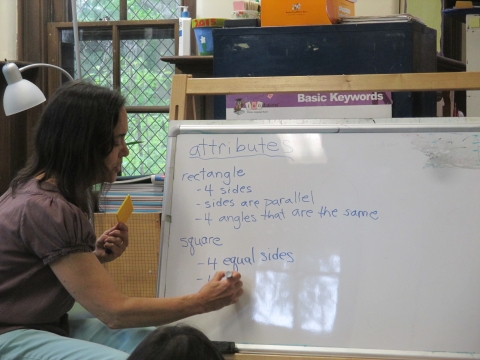 Basic Keywords
attributes
rectangle
- 4 sides
- sides are parallel
- 4 angles that are the same
square
- 4 equal sides
-